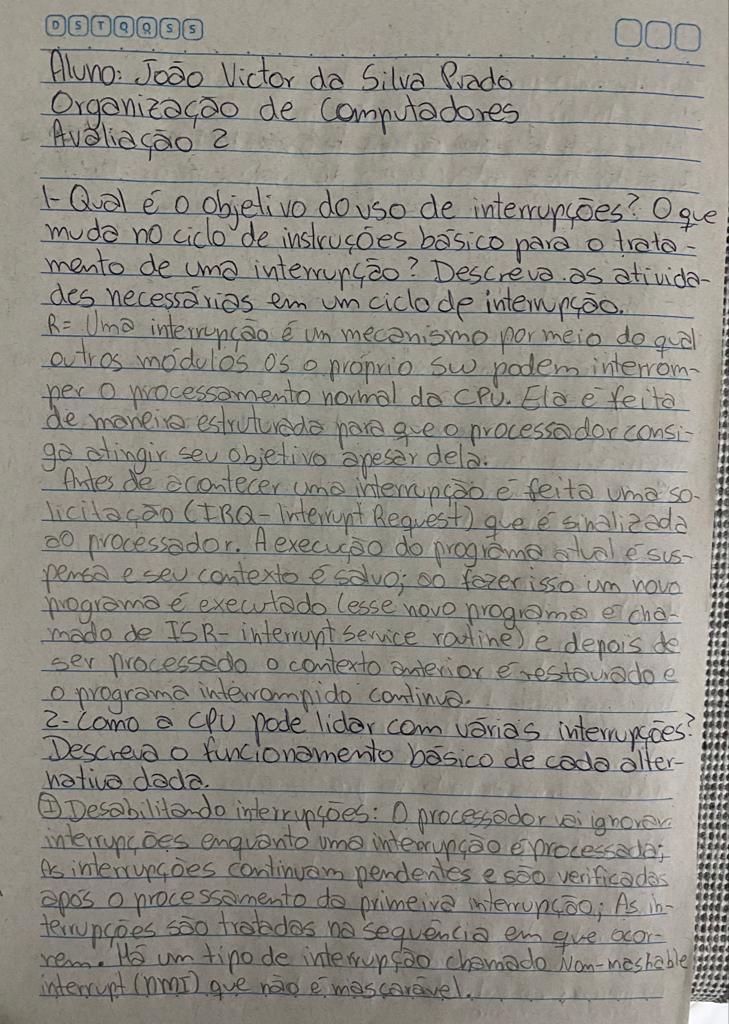 D S T Q Q S S
Aluno: João Victor da Silva Prado
Organização de Computadores
Avaliação 2
1- Qual é o objetivo do uso de interrupções? O que
muda no ciclo de instruções básico para o trata-
mento de uma interrupção? Descreva as ativida-
des necessárias em um ciclo de interrupção.
R= Uma interrupção é um mecanismo por meio do qual
outros módulos os o próprio sw podem interrom-
per o processamento normal da CPU. Ela é feita
de maneira estruturada para que o processador consi-
ga atingir seu objetivo apesar dela.
Antes de acontecer uma interrupção é feita uma so-
licitação (IRQ-Interrupt Request) que é sinalizada
ao processador. A execução do programa atual é sus-
pensa e seu contexto é salvo; ao fazer isso um novo
programa é executado (esse novo programa e cha-
mado de ISR- interrupt service routine) e depois de
ser processado o contexto anterior é restaurado e
o programa interrompido continua.
2- Como a CPU pode lidar com várias interrupções?
Descreva o funcionamento básico de cada alter-
nativa dada.
① Desabilitando interrupções: O processador vai ignorar
interrupções enquanto uma interrupção é processada;
As interrupções continuam pendentes e são verificadas
após o processamento da primeira interrupção; As in-
terrupções são tratadas na sequência em que ocor-
rem. Há um tipo de interrupção chamado Non-meshable
interrupt (NMI) que não é mascarável.